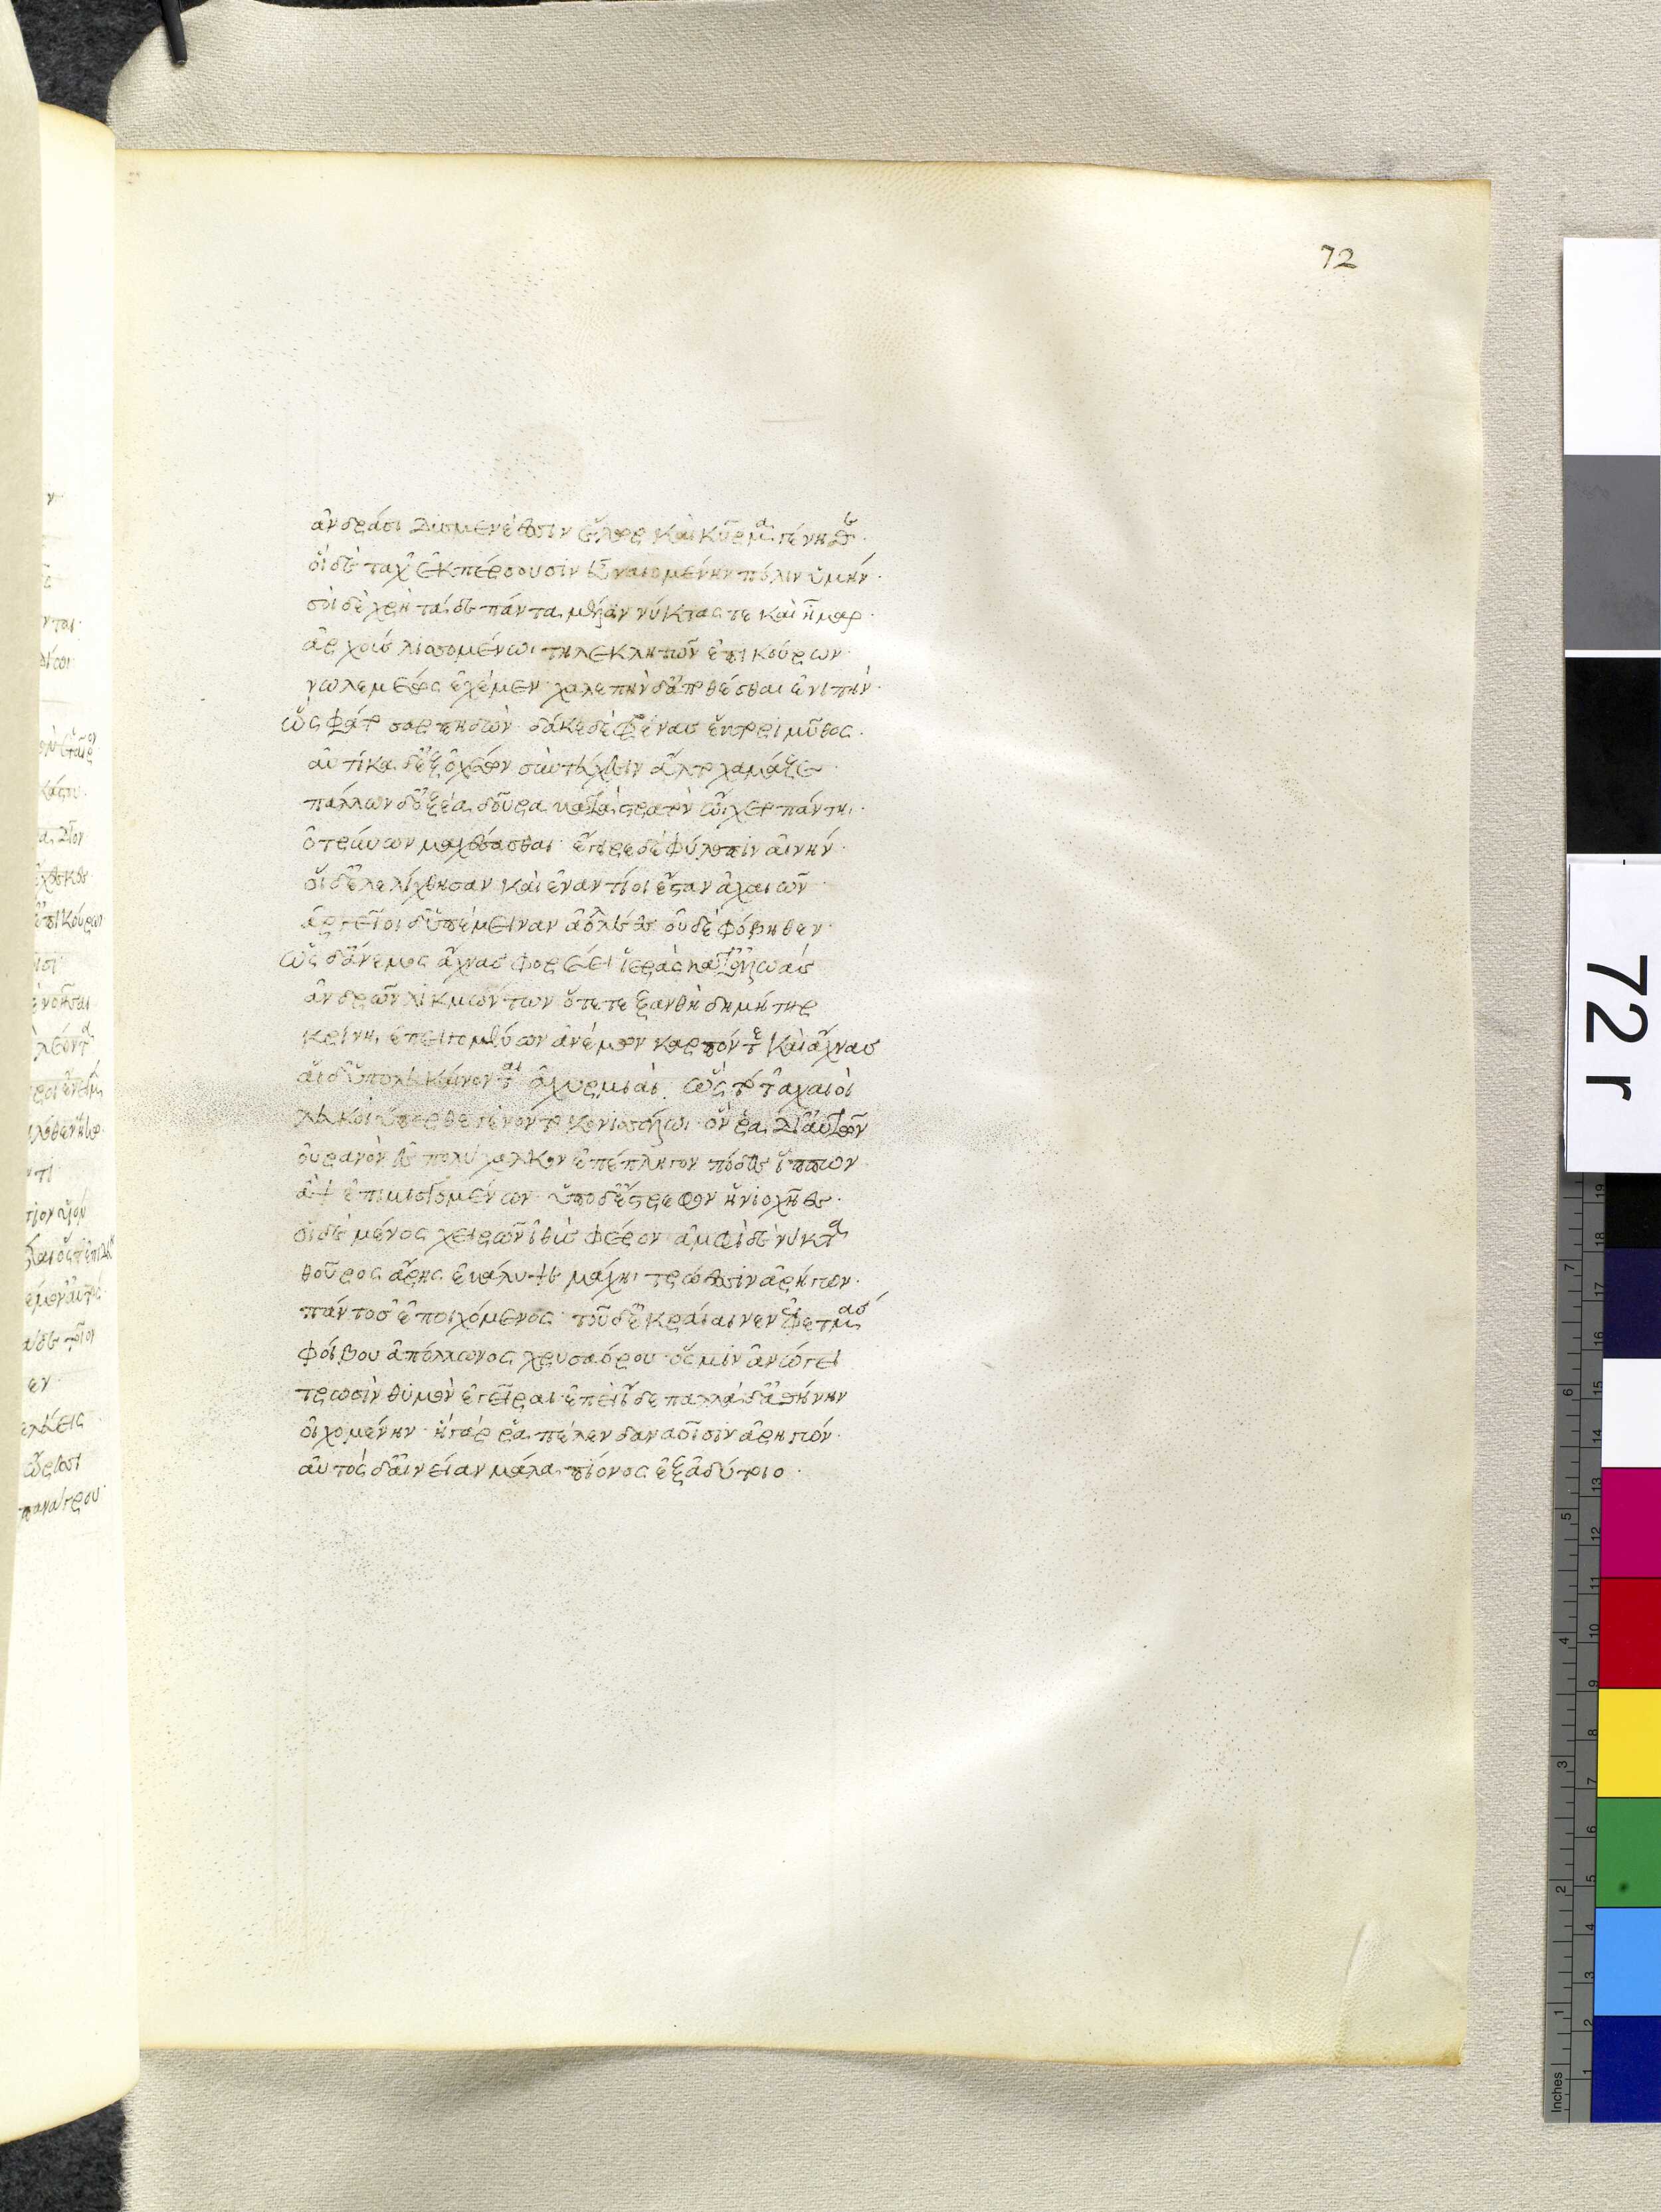 72
ἀνδράσι δυσμενέεσσιν ἕλωρ καὶ κῦρμα γένησθε·
οἱ δὲ τάχ' ἐκπέρσουσιν εὖ ναιομένην πόλιν ὑμήν·
σοὶ δὲ χρὴ τάδε πάντα μέλειν νύκτας τε καὶ ἦμαρ·
ἀρχοὺς λισσομένωι τηλεκλητῶν ἐπικούρων
νωλεμέως ἐχέμεν· χαλεπὴν δ' ἀποθέσθαι ἐνιπήν·
ὣς φάτο σαρπηδών· δάκε δὲ φρένας ἕκτορι μῦθος·
αὐτίκα δ' ἐξ ὀχέων σὺν τεύχεσιν ἆλτο χαμᾶζε·
πάλλων δ' ὀξέα δοῦρα κατὰ στρατὸν ᾤχετο πάντηι·
ὀτρύνων μαχέσασθαι· ἔγειρε δὲ φύλοπιν αἰνήν·
οἱ δ' ἐλελίχθησαν καὶ ἐναντίοι ἔσταν ἀχαιῶν·
ἀργεῖοι δ' ὑπέμειναν ἀολλέες οὐδὲ φόβηθεν·
ὡς δ' ἄνεμος ἄχνας φορέει ἱερὰς κατ' ἀλωὰς
ἀνδρῶν λικμώντων ὅτε τε ξανθὴ δημήτηρ
κρίνηι ἐπειγομένων ἀνέμων καρπόν τε καὶ ἄχνας
αἱ δ' ὑπολευκαίνονται ἀχυρμιαὶ· ὣς τότ' ἀχαιοὶ
λευκοὶ ὕπερθε γένοντο κονισσάλωι· ὅν ῥα δι' αὐτῶν
οὐρανὸν ἐς πολύχαλκον ἐπέπληγον πόδες ἵππων
ἂψ ἐπιμισγομένων· ὑπὸ δ' ἔστρεφον ἡνιοχῆες·
οἱ δὲ μένος χειρῶν ἰθὺς φέρον· ἀμφὶ δὲ νύκτα
θοῦρος ἄρης ἐκάλυψε μάχηι τρώεσσιν ἀρήγων·
πάντοσ' ἐποιχόμενος· τοῦ δ' ἐκραίαινεν ἐφετμὰς
φοίβου ἀπόλλωνος χρυσαόρου· ὅς μιν ἀνώγει
τρωσὶν θυμὸν ἐγεῖραι· ἐπεὶ ἴδε παλλάδ' ἀθήνην
οἰχομένην· ἡ γάρ ῥα πέλεν δαναοῖσιν ἀρηγών·
αὐτὸς δ' αἰνείαν μάλα πίονος ἐξ ἀδύτοιο·
72 r